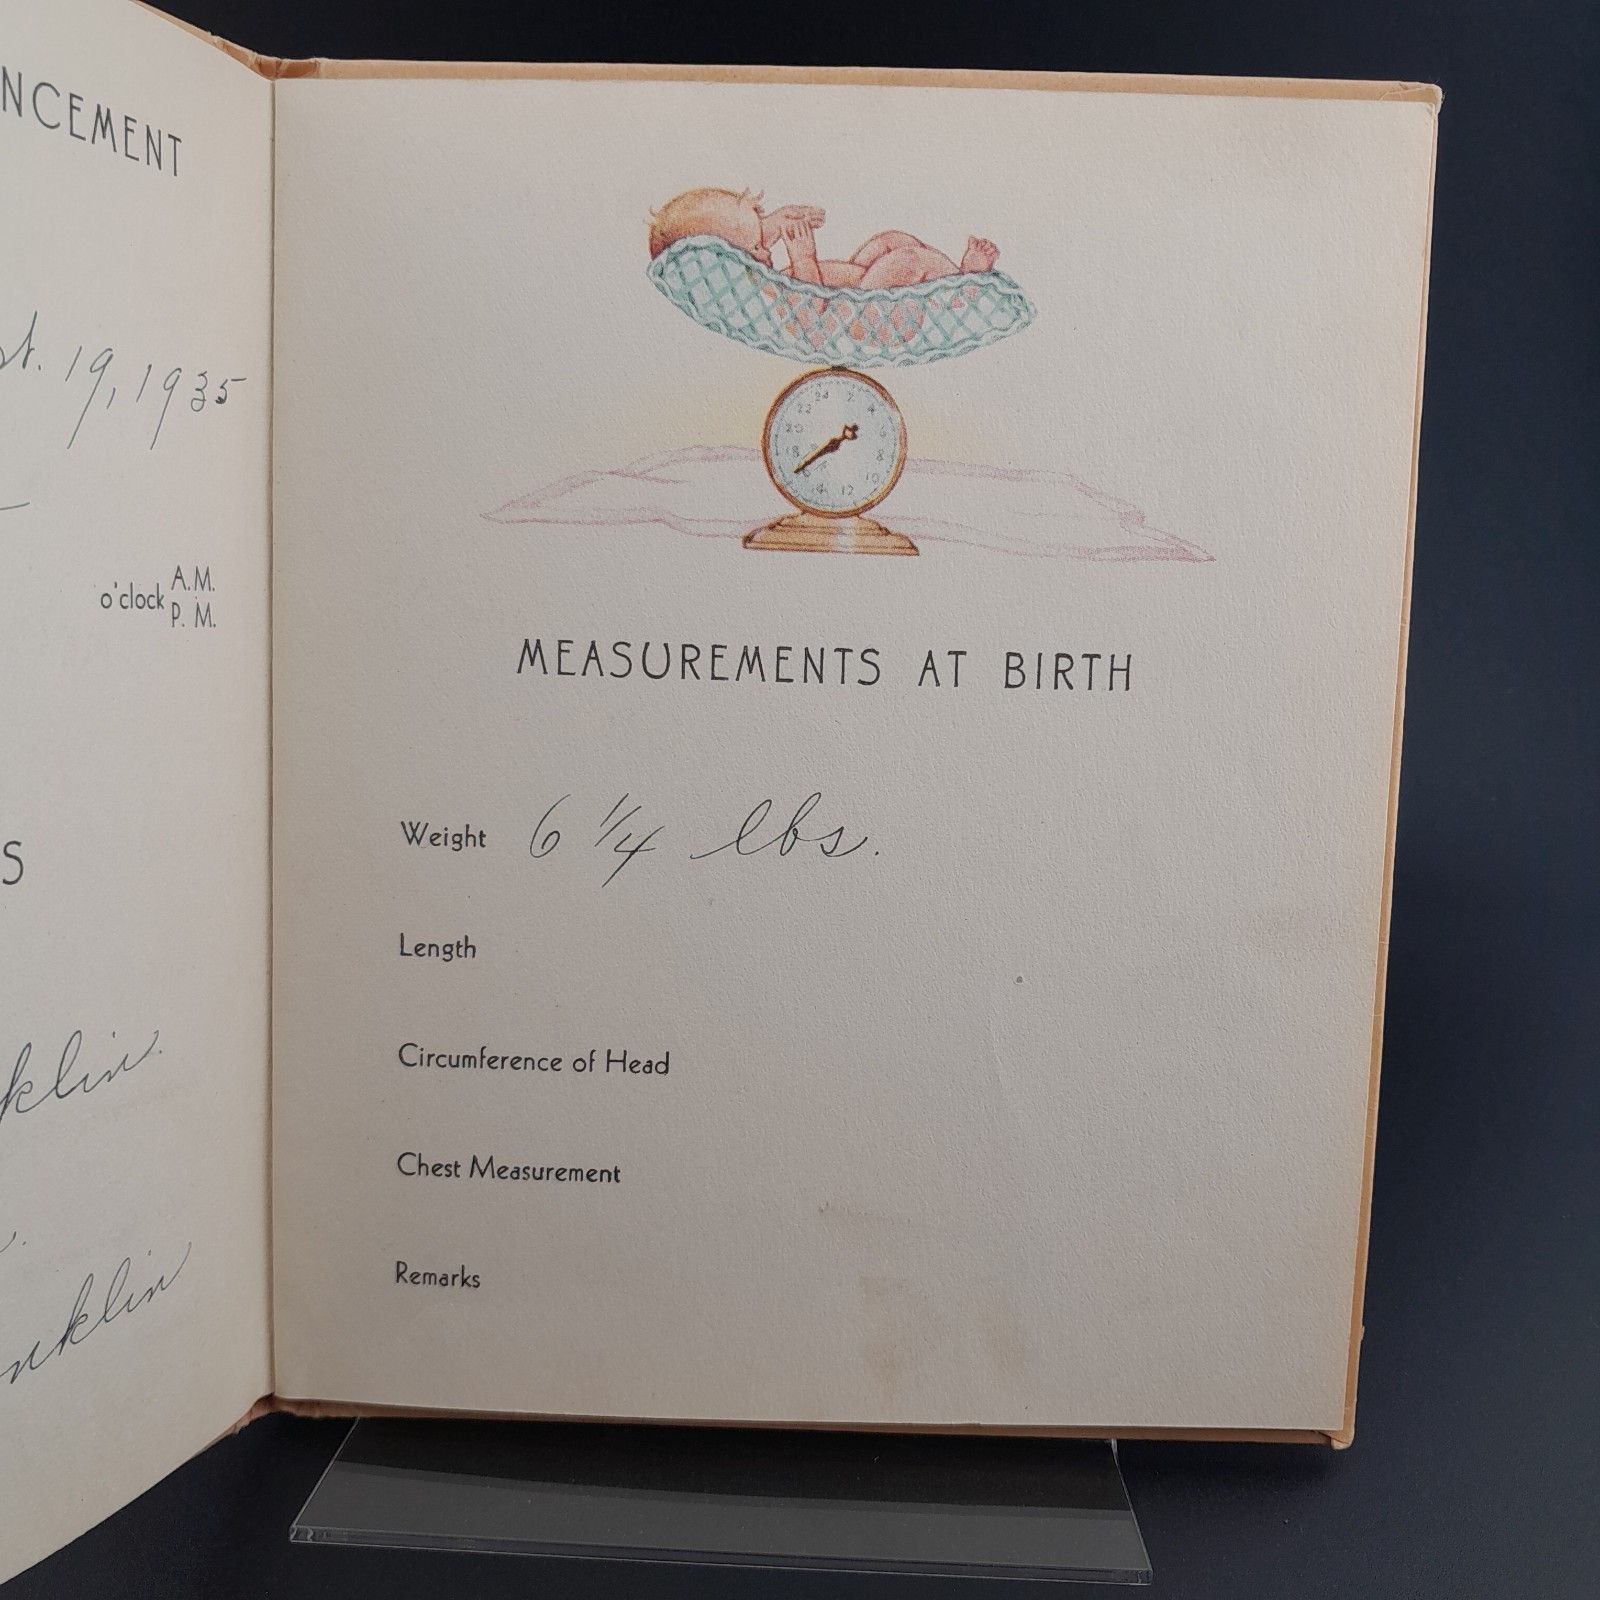 NCEMENT
st. 19, 1935
o'clock A.M.
P. M.
S
klin.
nklin
24 2 4 6 8 10 12 14 16 18 20 22
MEASUREMENTS AT BIRTH
Weight 6 1/4 lbs.
Length
Circumference of Head
Chest Measurement
Remarks